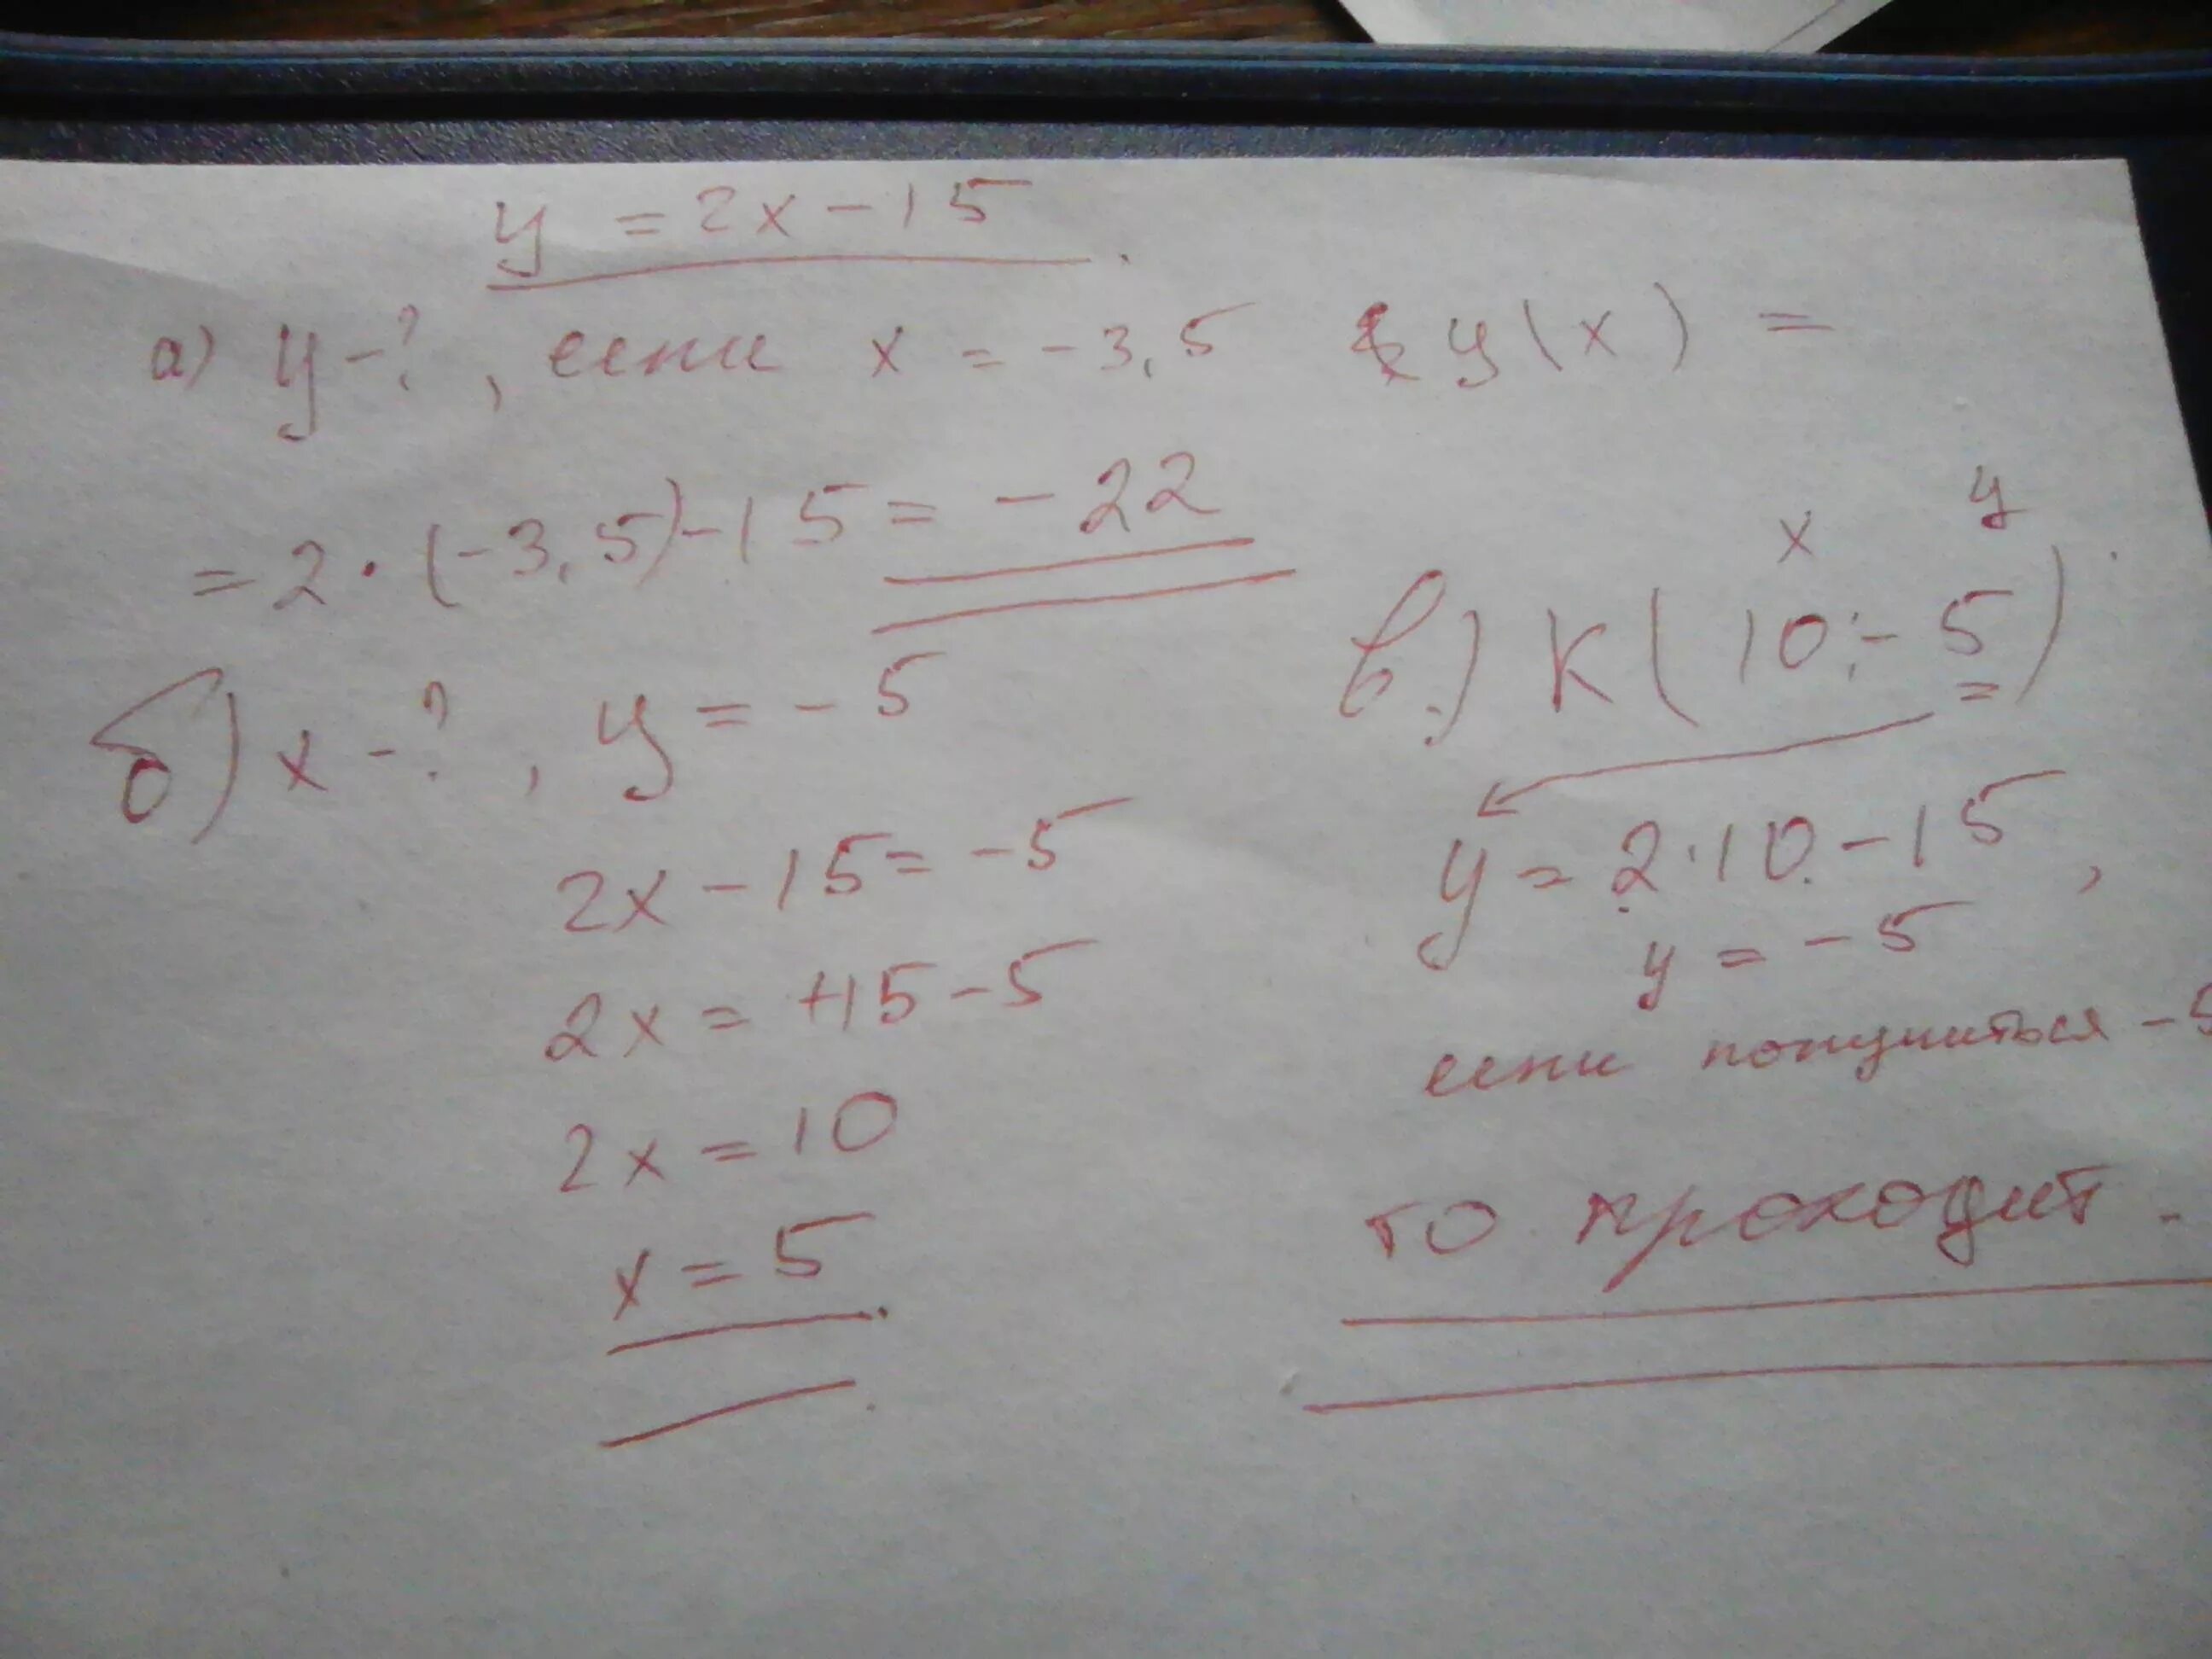 y = 2x - 15.
а) y - ?, если x = -3,5 y(x) =
= 2 · (-3,5) - 15 = -22
б) x - ?, y = -5
2x - 15 = -5
2x = +15 - 5
2x = 10
x = 5.
x y
в.) K(10; -5)
y = 2·10 - 15,
y = -5
если получиться -5
то проходит.